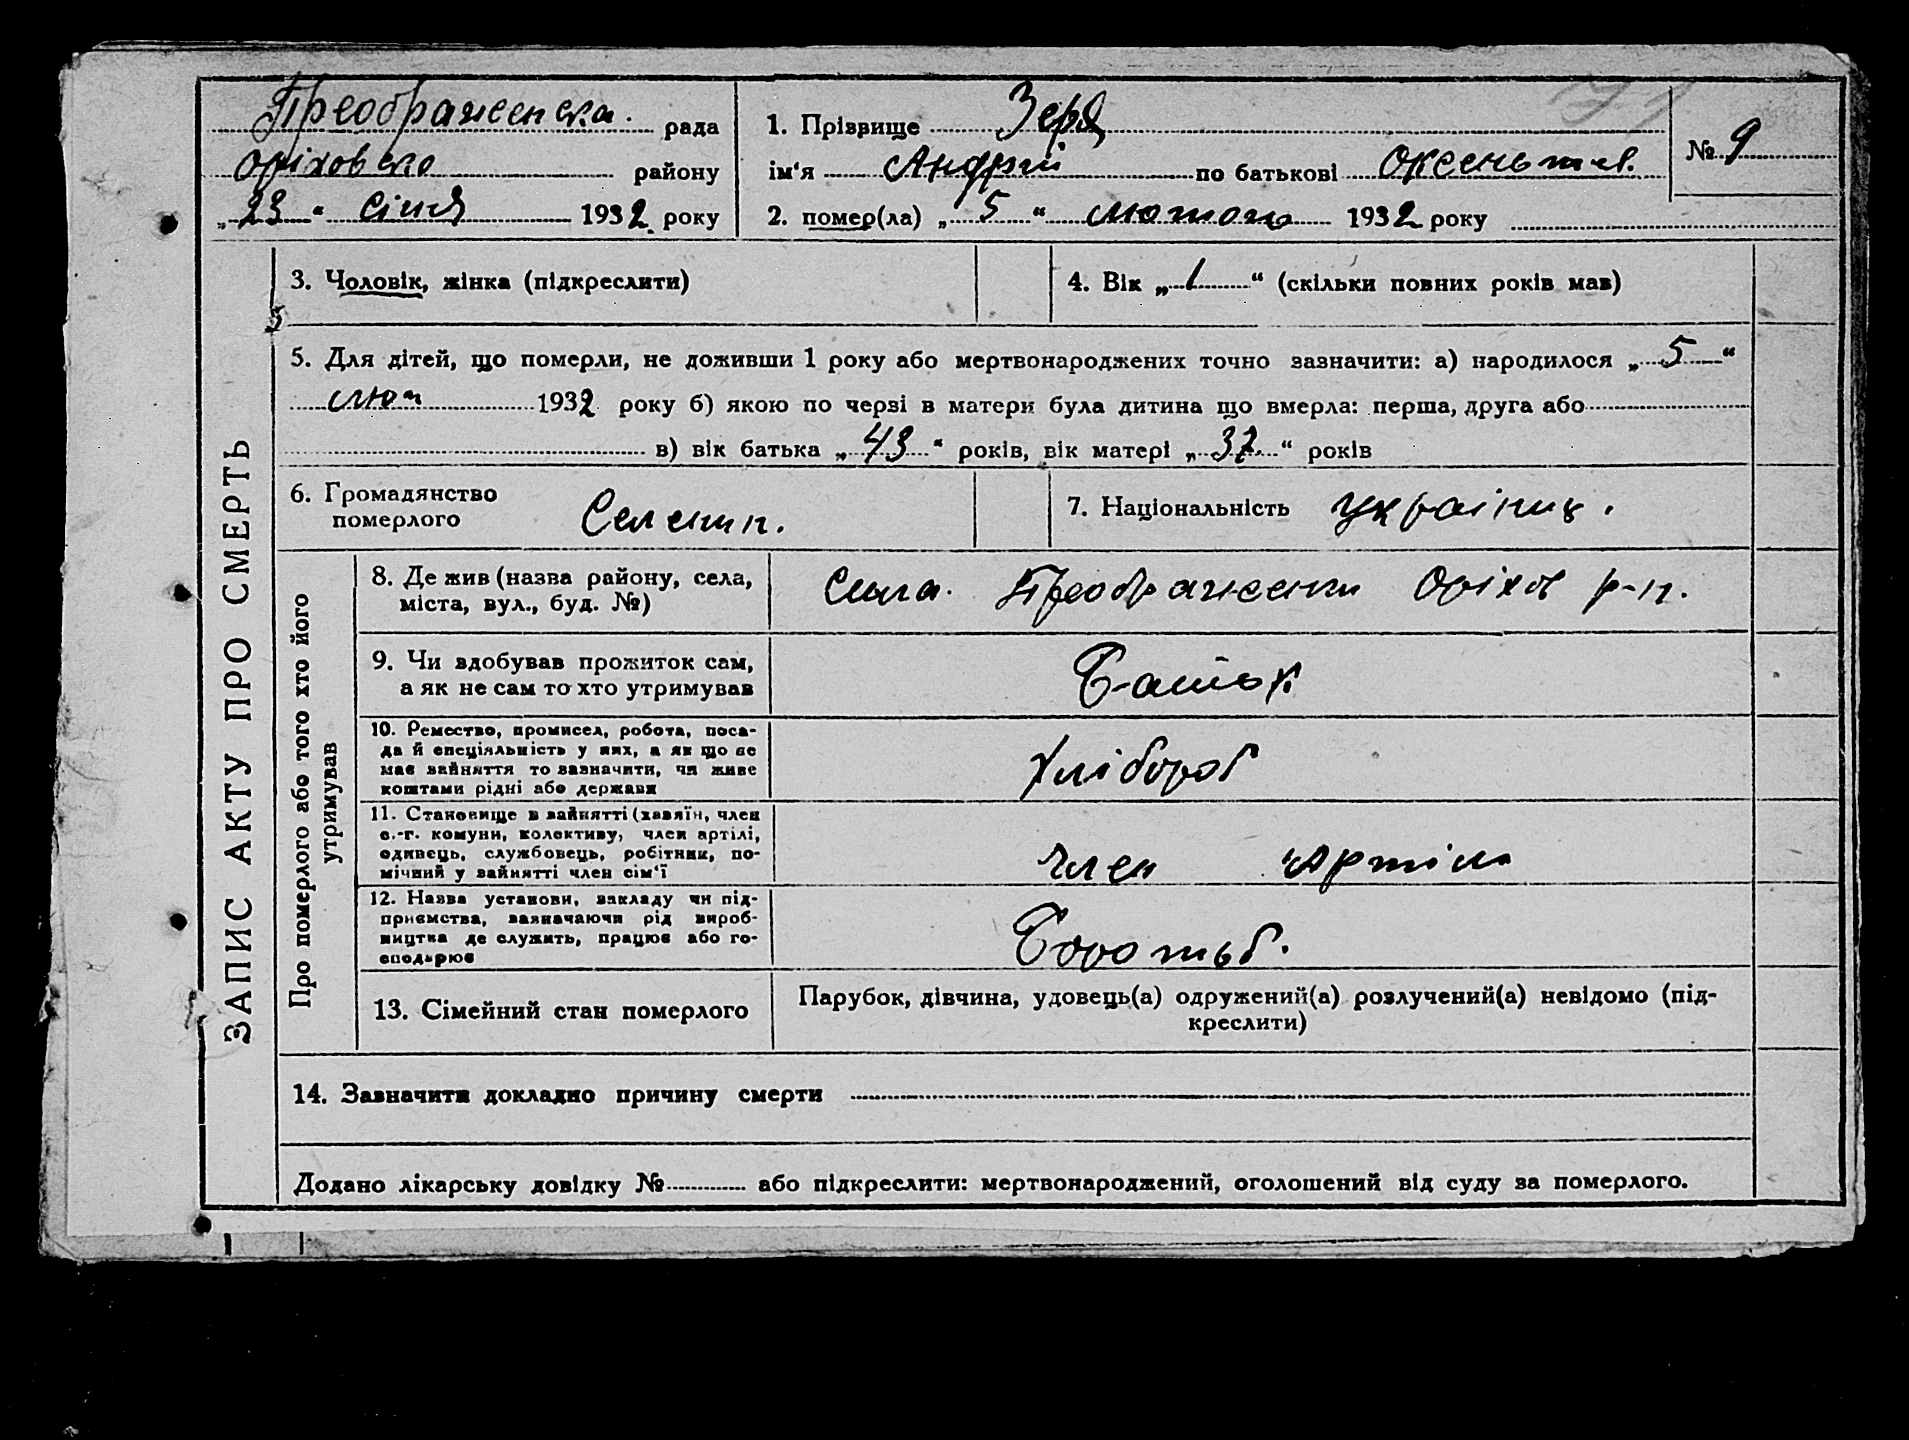 Преображенска. рада
Оріховсько району
„23“ Січня 1932 року
1. Прізвище Зеря
ім‘я Андрій по батькові Оксентьєв.
№ 9
2. помер(ла) „5“ лютого 1932 року
ЗАПИС АКТУ ПРО СМЕРТЬ
3. Чоловік, жінка (підкреслити)
4. Вік „1“ (скільки повних років мав)
5. Для дітей, що померли, не доживши 1 року або мертвонароджених точно зазначити: а) народилося „5“
лют 1932 року б) якою по черзі в матери була дитина що вмерла: перша, друга або
в) вік батька „43“ років, вік матері „37“ років
6. Громадянство
померлого
Селянин.
7. Національність Українц.
Про померлого або того хто його
утримував
8. Де жив (назва району, села,
міста, вул., буд. №)
Преображенки Оріхов р-н.
9. Чи здобував прожиток сам,
а як не сам то хто утримував
Батьк
10. Ремество, промисел, робота, поса-
да й спеціяльність у них, а як що не
має зайняття то зазначити, чи живе
коштами рідні або держави
Хлібороб
11. Становище в зайнятті (хазяїн, член
с.-г. комуни, колективу, член артілі,
одивець, службовець, робітник, по-
мічний у зайнятті член сім‘ї
Член Артіли
12. Назва установи, закладу чи під-
приємства, зазначаючи рід вироб-
ництва де служить, працює або го-
сподарює
Боротьб.
13. Сімейний стан померлого
Парубок, дівчина, удовець(а) одружений(а) розлучений(а) невідомо (під-
креслити)
14. Зазначити докладно причину смерти
Додано лікарську довідку № або підкреслити: мертвонароджений, оголошений від суду за померлого.